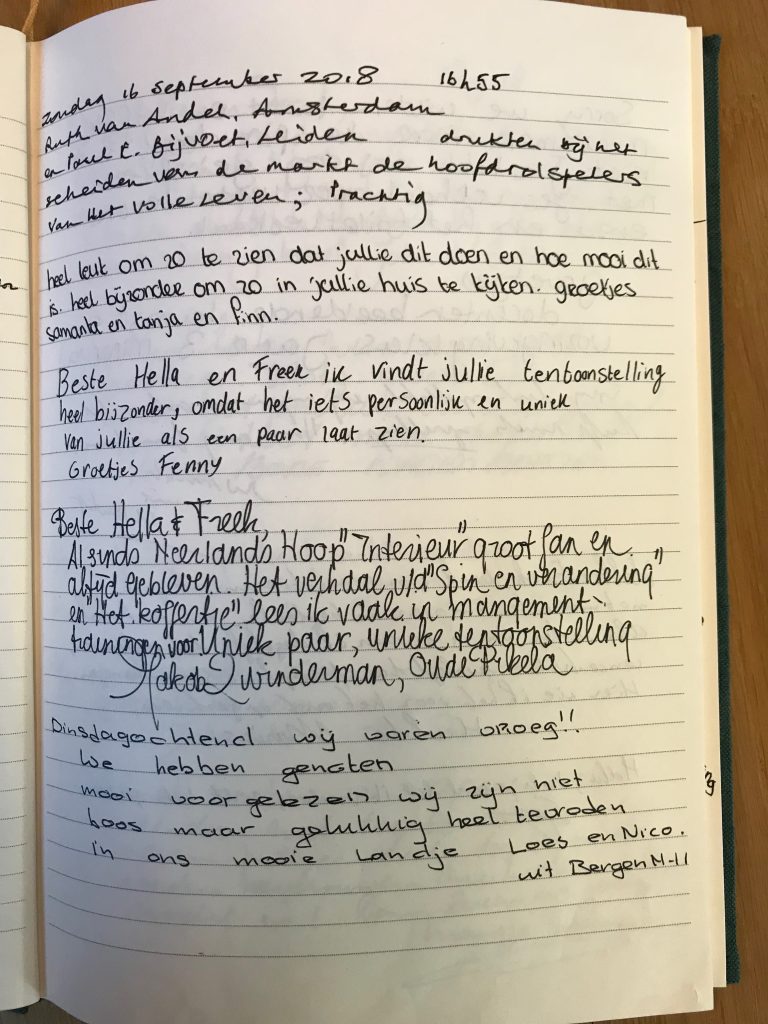 zondag 16 september 2018 16h55
Ruth van Andel, Amsterdam
en Paul C. Bijvoet, Leiden drukten bij het
scheiden van de markt de hoofdrolspelers
van Het volle Leven; Prachtig
heel leuk om zo te zien dat jullie dit doen en hoe mooi dit
is. heel bijzonder om zo in jullie huis te kijken. groetjes
samanta en tanja en finn.
Beste Hella en Freek ik vindt jullie tentoonstelling
heel bijzonder, omdat het iets persoonlijk en uniek
van jullie als een paar laat zien.
Groetjes Fenny
Beste Hella & Freek,
Al sinds Neerlands Hoop "Interieur" groot fan en
altijd gebleven. Het verhaal v/d "Spin en verandering"
en "Het "koffertje" lees ik vaak in mangement-
trainingen voor Uniek paar, unieke tentoonstelling
Jakob Zwinderman, Oude Pekela
Dinsdagochtend wij waren vroeg!!
We hebben genoten
mooi voorgelezen wij zijn niet
boos maar gelukkig heel tevroden
in ons mooie landje Loes en Nico.
uit Bergen N-H